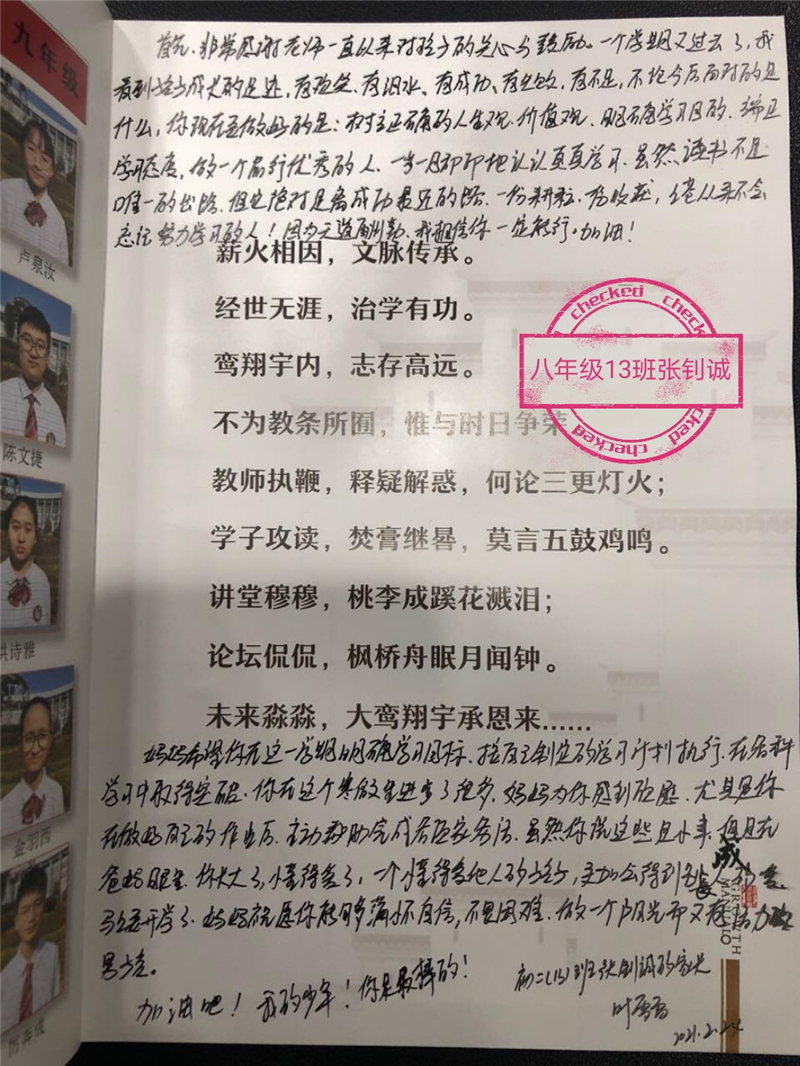 九年级
卢泉汝
陈文捷
洪诗雅
金羽西
首先、非常感谢老师一直以来对孩子的关心与鼓励。一个学期又过去了,我
看到孩子成长的足迹,有欢笑、有泪水、有成功、有失败,有不足,不论今后面对的是
什么,你现在要做好的是:树立正确的人生观、价值观、明确学习目的、端正
学习态度,做一个品行优秀的人、一步一脚印地认认真真学习。虽然,读书不是
唯一的出路,但也绝对是离成功最近的路,一份耕耘一份收获,从来不会
忘记努力学习的人!因为天道酬勤,我相信你一定能行。加油!
薪火相因,文脉传承。
经世无涯,治学有功。
鸾翔宇内,志存高远。
checked checked
八年级13班张钊诚
checked checked
不为教条所囿,惟与时日争荣
教师执鞭,释疑解惑,何论三更灯火;
学子攻读,焚膏继晷,莫言五鼓鸡鸣。
讲堂穆穆,桃李成蹊花溅泪;
论坛侃侃,枫桥舟眠月闻钟。
未来淼淼,大鸾翔宇承恩来……
妈妈希望你在这一学期明确学习目标、按自己制定的学习计划执行、在各科
学习中取得突破。你在这个寒假里进步了很多、妈妈为你感到欣慰、尤其是你
在做好自己的作业后、主动帮助完成各项家务活、虽然你说这些是小事、但是在
爸妈眼里、你长大了,懂得爱了,一个懂得爱他人的孩子,更加会得到别人的爱
马上要开学了、妈妈祝愿你能够多满怀自信,不畏困难、做一个阳光而又有活力的
男孩。
成长
加油吧!我的少年!你是最棒的!
初二(13)班张钊诚的家长
2021.2.24